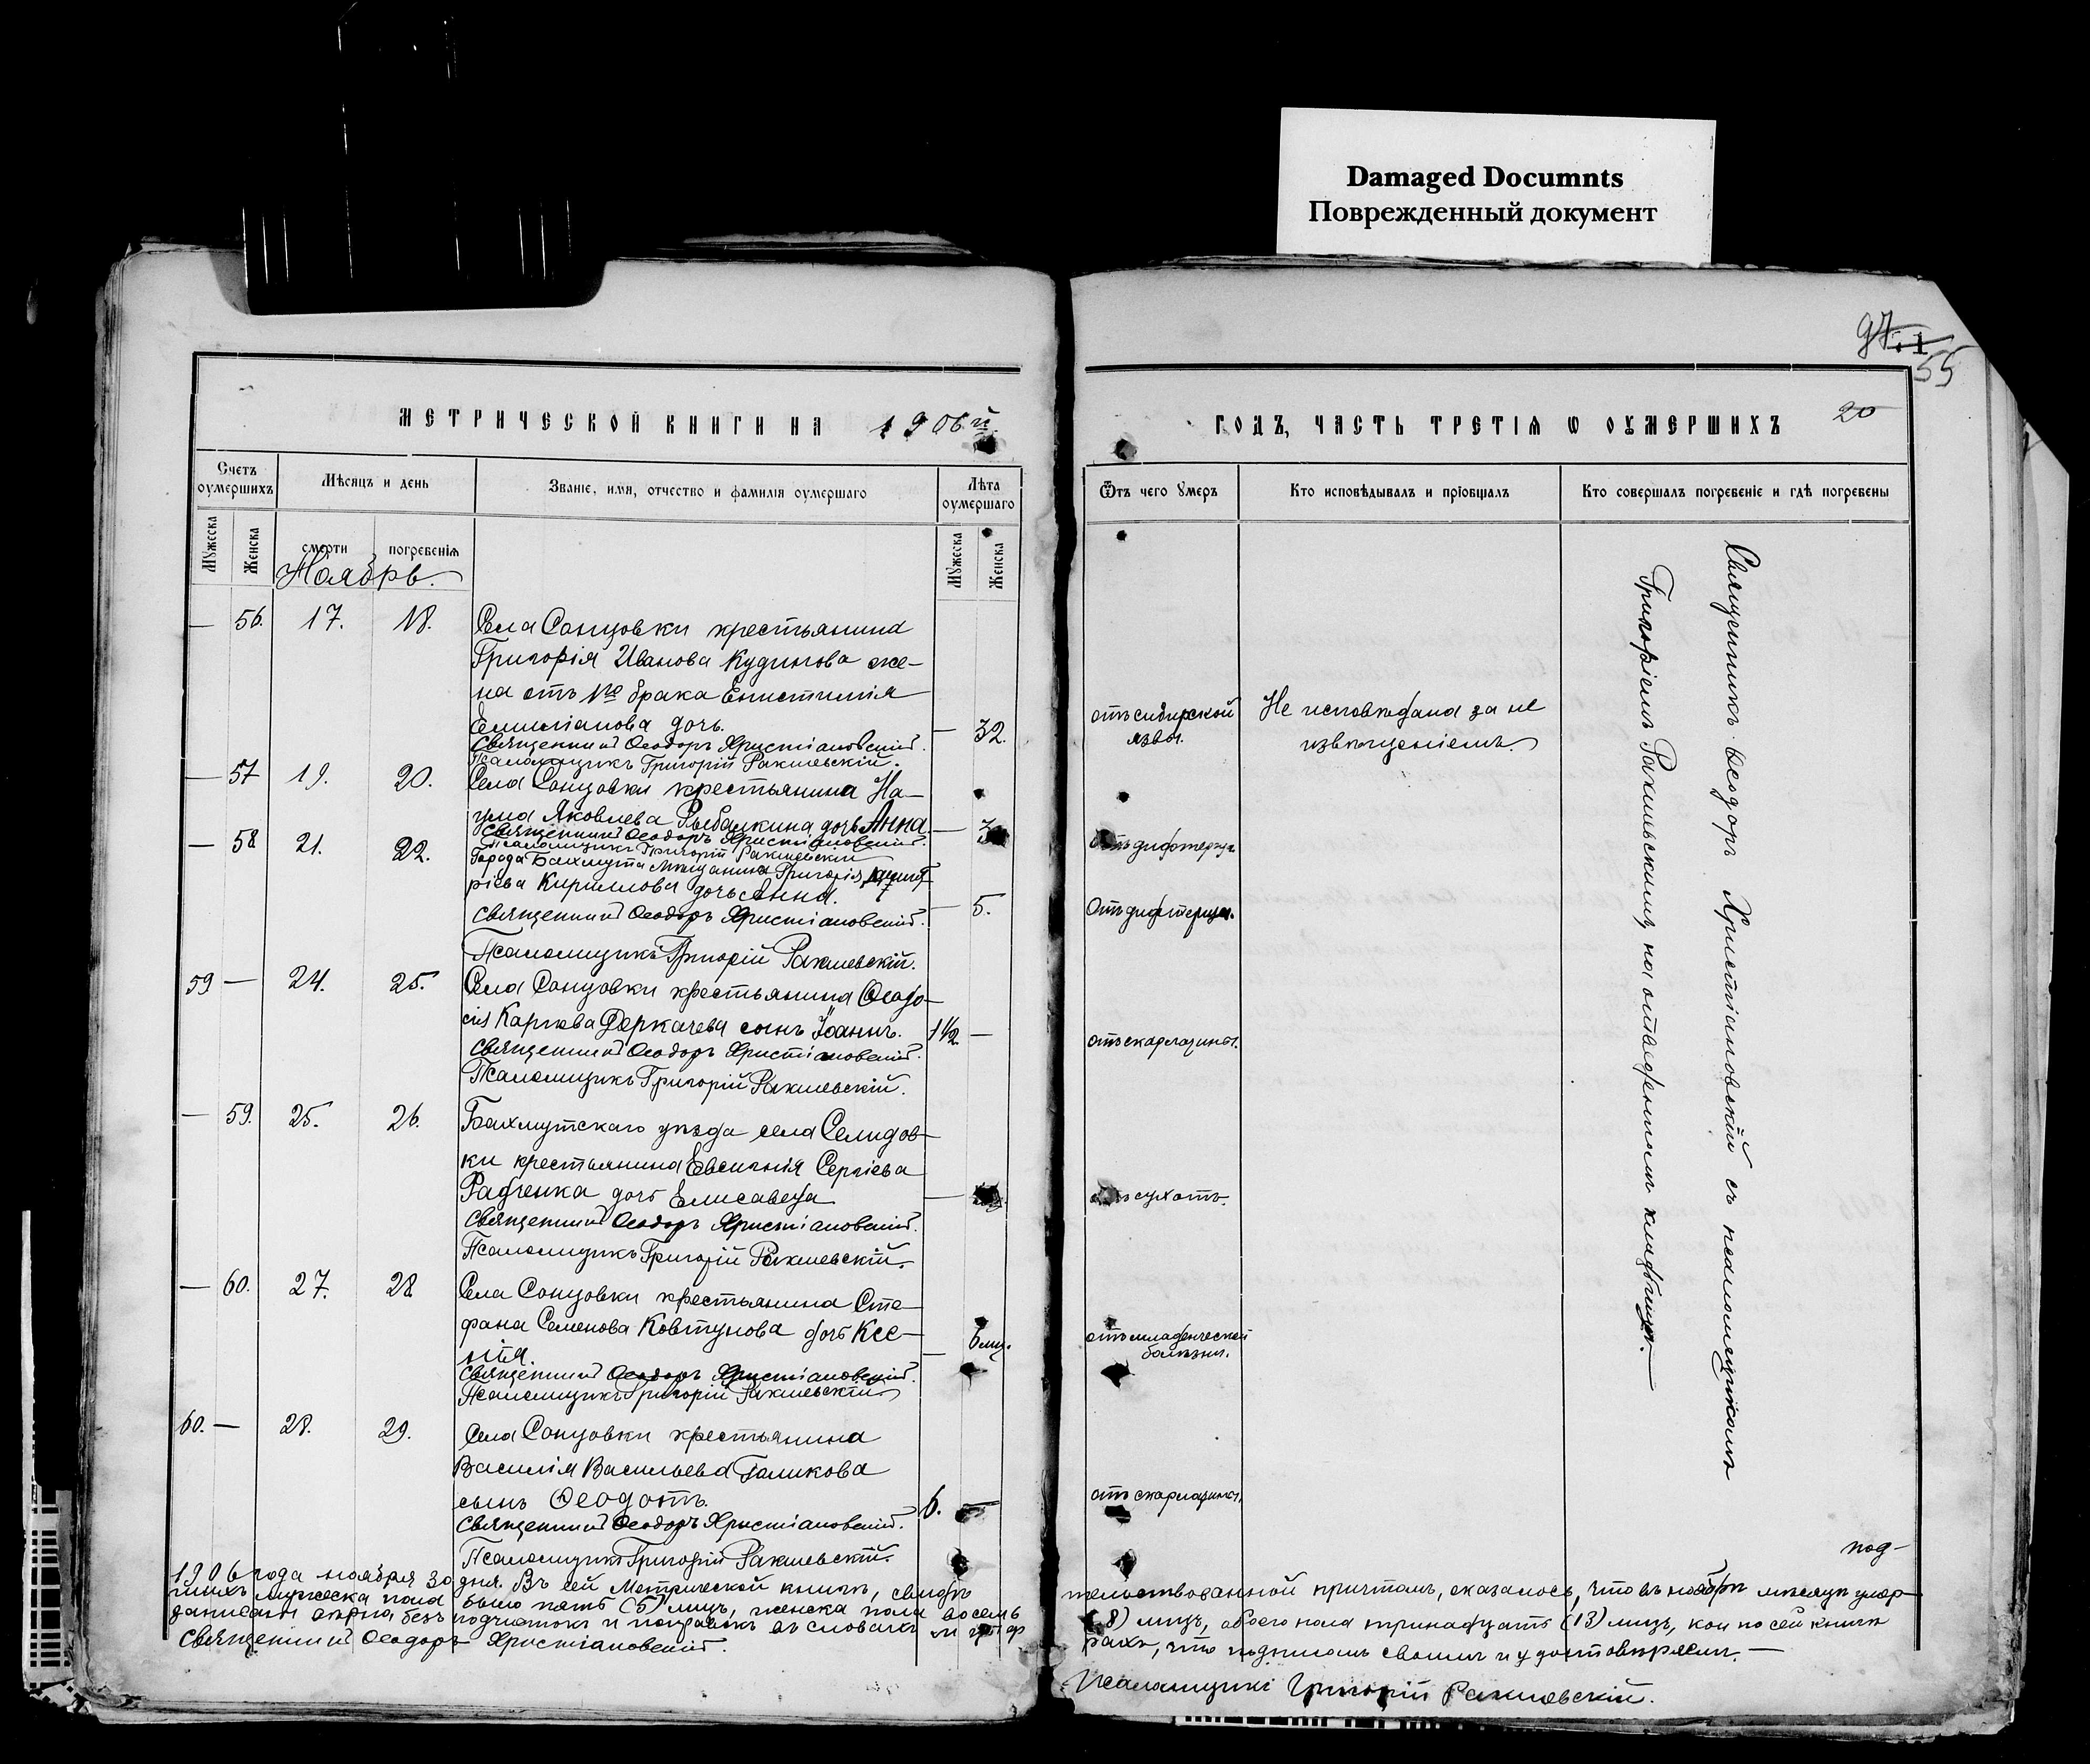 Damaged Documnts
Поврежденный документ
97
55
20
МЕТРИЧЕСКОЙ КНИГИ НА 1906й
ГОДЪ, ЧАСТЬ ТРЕТІЯ Ѡ ОУМЕРШИХЪ
Счетъ оумершихъ
Мѣсяцъ и день
Званіе, имя, отчество и фамилія оумершаго
Лѣта оумершаго
Ѿтъ чего умеръ
Кто исповѣдывалъ и пріобщалъ
Кто совершалъ погребеніе и гдѣ погребены
Мужеска
Женска
смерти
погребенія
Мужеска
Женска
Ноябрь.
— 56. 17. 18. Села Сонцовки крестьянина
Григорія Иванова Кудинова же-
на отъ 1го брака
Емиліанова дочь. — 32. отъ сибирской язвы. Не исповѣдана за не извѣщеніемъ.
Священникъ Ѳеодоръ Христіановскій.
Псаломщикъ Григорій Ракшевскій.
— 57 19. 20. Села Сонцовки крестьянина На-
ума Яковлева Рыбалкина дочь Анна. — 3 отъ дифтерита
Священникъ Ѳеодоръ Христіановскій.
Псаломщикъ Григорій Ракшевскій
— 58 21. 22. Города Бахмута мѣщанина Григорія
Кириллова дочь Анна. — 5. Отъ дифтерита.
Священникъ Ѳеодоръ Христіановскій.
Псаломщикъ Григорій Ракшевскій.
59 — 24. 25. Села Сонцовки крестьянина Ѳеодо-
сія Карпова Деркачева сынъ Іоаннъ. 1½ — отъ скарлатины.
Священникъ Ѳеодоръ Христіановскій.
Псаломщикъ Григорій Ракшевскій.
— 59. 25. 26. Бахмутскаго уѣзда села Селидов-
ки крестьянина Евгенія Сергіева
Радченка дочь Елисавета — отъ сухотъ.
Священникъ Ѳеодоръ Христіановскій.
Псаломщикъ Григорій Ракшевскій.
— 60. 27. 28 Села Сонцовки крестьянина Сте-
фана Семенова Ковтунова дочь Ксе-
нія. — 6 мц. отъ младенческой болѣзни.
Священникъ Ѳеодоръ Христіановскій.
Псаломщикъ Григорій Ракшевскій.
60. — 28. 29. Села Сонцовки крестьянина
Василія Васильева Галикова
сынъ Ѳеодотъ. 6. — отъ скарлатины.
Священникъ Ѳеодоръ Христіановскій.
Псаломщикъ Григорій Ракшевскій.
Священникъ Ѳеодоръ Христіановскій съ псаломщикомъ
Григоріемъ Ракшевскимъ, на отведенномъ кладбищѣ.—
под-
1906 года ноября 30 дня. Въ сей Метрической книгѣ, свидѣ тельствованной причтомъ, оказалось, что въ ноябрѣ мѣсяцѣ умер-
шихъ мужеска пола было пять (5) лицъ, женска пола восемь (8) лицъ, обоего пола тринадцать (13) лицъ, кои по сей книгѣ
записаны вѣрно, безъ подчистокъ и поправокъ въ словахъ и циф рахъ, что подписомъ своимъ и удостовѣряемъ.—
Священникъ Ѳеодоръ Христіановскій.
Псаломщикъ Григорій Ракшевскій.